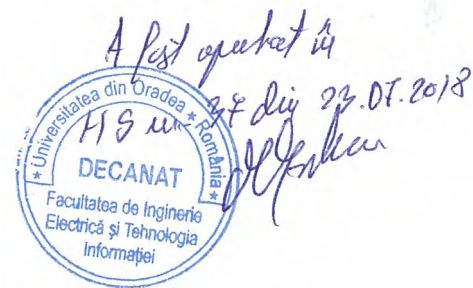 A fost aprobat în
HS nr. 37 din 23.07.2018
* Universitatea din Oradea * România *
DECANAT
Facultatea de Inginerie
Electrică și Tehnologia
Informației